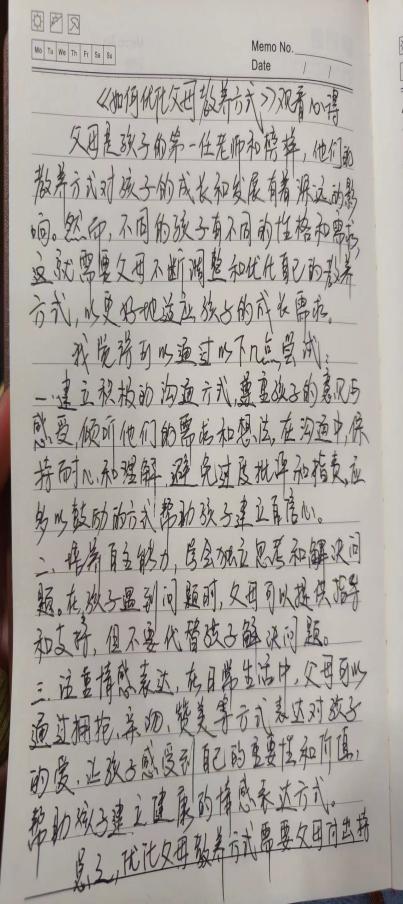 Mo Tu We Th Fr Sa Su
Memo No.
Date / /
《如何优化父母教养方式》观看心得
父母是孩子的第一任老师和榜样,他们的
教养方式对孩子的成长和发展有着深远的影
响。然而,不同的孩子有不同的性格和需求,
这就需要父母不断调整和优化自己的教养
方式,以更好地适应孩子的成长需求。
我觉得可以通过以下几点尝试:
一.建立积极的沟通方式,尊重孩子的意见与
感受,倾听他们的需求和想法,在沟通中,保
持耐心和理解,避免过度批评和指责,应
多以鼓励的方式帮助孩子建立自信心。
二.培养自主能力,学会独立思考和解决问
题。在孩子遇到问题时,父母可以提供指导
和支持,但不要代替孩子解决问题。
三.注重情感表达,在日常生活中,父母可以
通过拥抱、亲吻、赞美等方式表达对孩子
的爱,让孩子感受到自己的重要性和价值,
帮助孩子建立健康的情感表达方式。
总之,优化父母教养方式需要父母付出持